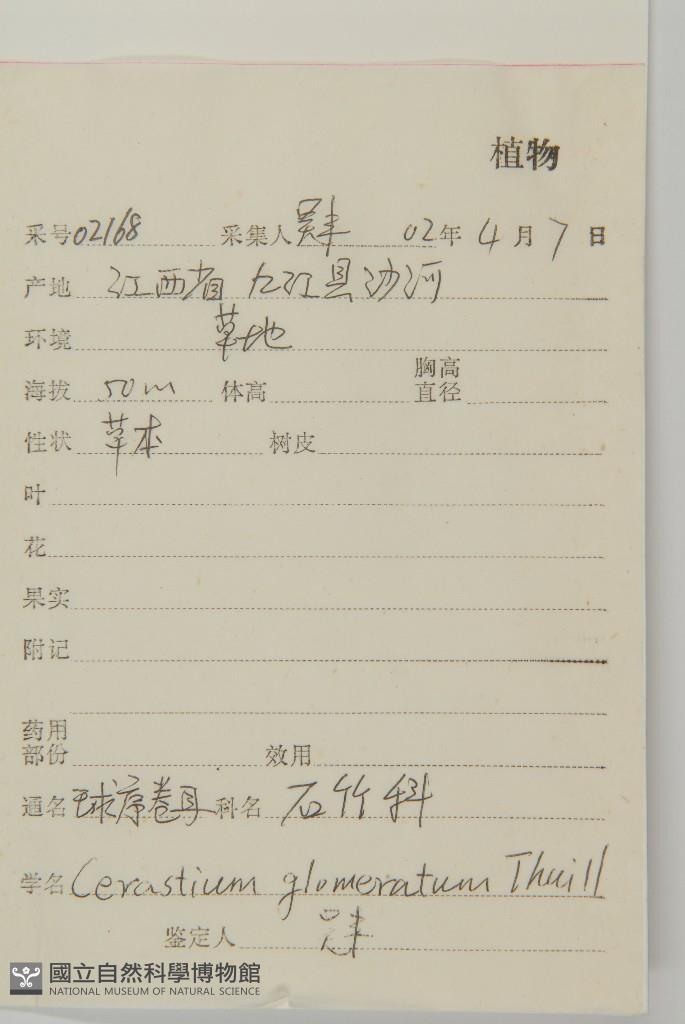 植物
采号 02168 采集人 02年 4月 7日
产地 江西省 九江县沙河
环境 草地
海拔 50m 体高 胸高直径
性状 草本 树皮
叶
花
果实
附记
药用部份 效用
通名 球序卷耳 科名 石竹科
学名 Cerastium glomeratum Thuill
鉴定人
國立自然科學博物館
NATIONAL MUSEUM OF NATURAL SCIENCE